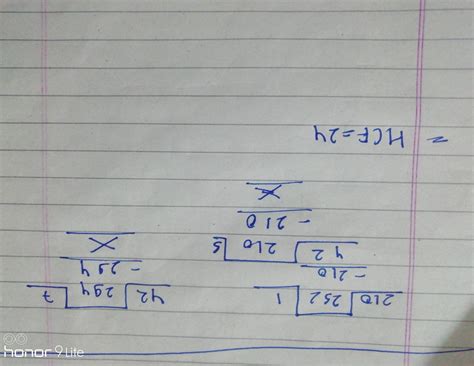 210 252 1
- 210
42 210 5
- 210
X
42 294 7
- 294
X
= HCF = 24
honor 9 Lite